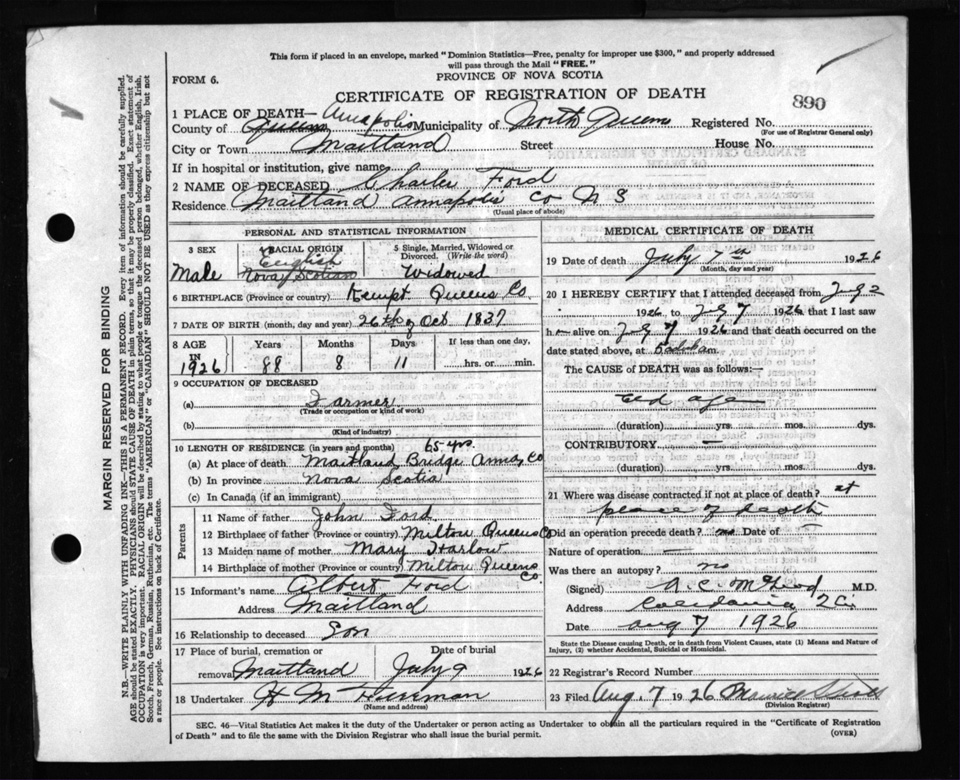 This form if placed in an envelope, marked "Dominion Statistics—Free, penalty for improper use $300," and properly addressed
will pass through the Mail "FREE."
FORM 6.
PROVINCE OF NOVA SCOTIA
CERTIFICATE OF REGISTRATION OF DEATH
890
1 PLACE OF DEATH— Annapolis
County of Queens Municipality of North Queens Registered No.
(For use of Registrar General only)
City or Town Maitland Street House No.
If in hospital or institution, give name
2 NAME OF DECEASED Charles Ford
Residence Maitland Annapolis Co N S
(Usual place of abode)
PERSONAL AND STATISTICAL INFORMATION
3 SEX Male
4 RACIAL ORIGIN English
Nova Scotian
5 Single, Married, Widowed or
Divorced. (Write the word)
Widowed
6 BIRTHPLACE (Province or country) Kempt Queens Co.
7 DATE OF BIRTH (month, day and year) 26th of Oct 1837
8 AGE IN 1926 Years 88 Months 8 Days 11 If less than one day,
hrs. or min.
9 OCCUPATION OF DECEASED
(a) Farmer
(Trade or occupation or kind of work)
(b)
(Kind of industry)
10 LENGTH OF RESIDENCE (in years and months) 65 yrs.
(a) At place of death Maitland Bridge Anna, Co
(b) In province Nova Scotia
(c) In Canada (if an immigrant)
Parents
11 Name of father John Ford
12 Birthplace of father (Province or country) Milton Queens Co
13 Maiden name of mother Mary Harlow
14 Birthplace of mother (Province or country) Milton Queens Co.
15 Informant's name Albert Ford
Address Maitland
16 Relationship to deceased Son
17 Place of burial, cremation or Date of burial
removal Maitland July 9 1926
18 Undertaker H M
(Name and address)
MEDICAL CERTIFICATE OF DEATH
19 Date of death July 7th 1926
(Month, day and year)
20 I HEREBY CERTIFY that I attended deceased from July 2
1926 to July 7 1926 that I last saw
h alive on July 7 1926 and that death occurred on the
date stated above, at m.
The CAUSE of DEATH was as follows:—
old age
(duration) yrs. mos. dys.
CONTRIBUTORY —
(duration) yrs. mos. dys.
21 Where was disease contracted if not at place of death? at
place of death
Did an operation precede death? no Date of —
Nature of operation —
Was there an autopsy? no
(Signed) A. C. M.D.
Address Caledonia Q Co.
Date Aug 7 1926
State the Disease causing Death, or in death from Violent Causes, state (1) Means and Nature of
Injury, (2) whether Accidental, Suicidal or Homicidal.
22 Registrar's Record Number
23 Filed Aug. 7 1926 Maurice
(Division Registrar)
SEC. 46—Vital Statistics Act makes it the duty of the Undertaker or person acting as Undertaker to obtain all the particulars required in the "Certificate of Registration
of Death" and to file the same with the Division Registrar who shall issue the burial permit.
(OVER)
MARGIN RESERVED FOR BINDING
N.B.—WRITE PLAINLY WITH UNFADING INK—THIS IS A PERMANENT RECORD. Every item of information should be carefully supplied.
AGE should be stated EXACTLY. PHYSICIANS should STATE CAUSE OF DEATH in plain terms, so that it may be properly classified. Exact statement of
OCCUPATION is very important. RACIAL ORIGIN will be described by stating to what people or tongue the deceased person belonged, whether English, Irish,
Scotch, French, German, Russian, Ruthenian, etc. The terms "AMERICAN" or "CANADIAN" SHOULD NOT BE USED as they express citizenship but not
a race or people. See instructions on back of Certificate.